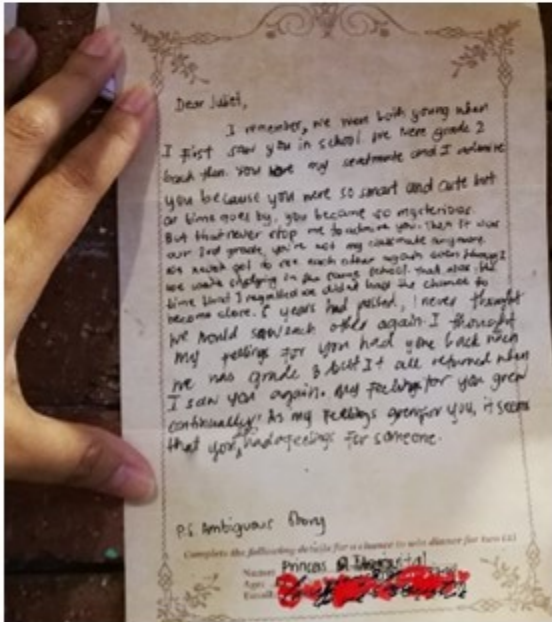 Dear Juliet,
I remember, we were both young when
I first saw you in school. We were grade 2
back then. You were my seatmate and I admire
you because you were so smart and cute but
as time goes by, you became so mysterious.
But that never stop me to admire you. Then it was
our 3rd grade, you're not my classmate anymore.
We never got to see each other again even though
we were studying in the same school. That was the
time that I regretted we didn't have the chance to
become close. 6 years had passed, I never thought
we would saw each other again. I thought
my feelings for you had gone back when
we was grade 3 but It all returned when
I saw you again. My feelings for you grew
continually. As my feelings grew for you, it seems
that you had feelings for someone.
P.S. Ambiguous Story
Complete the following details for a chance to win dinner for two (2)
Name: Princess
Age:
Email: